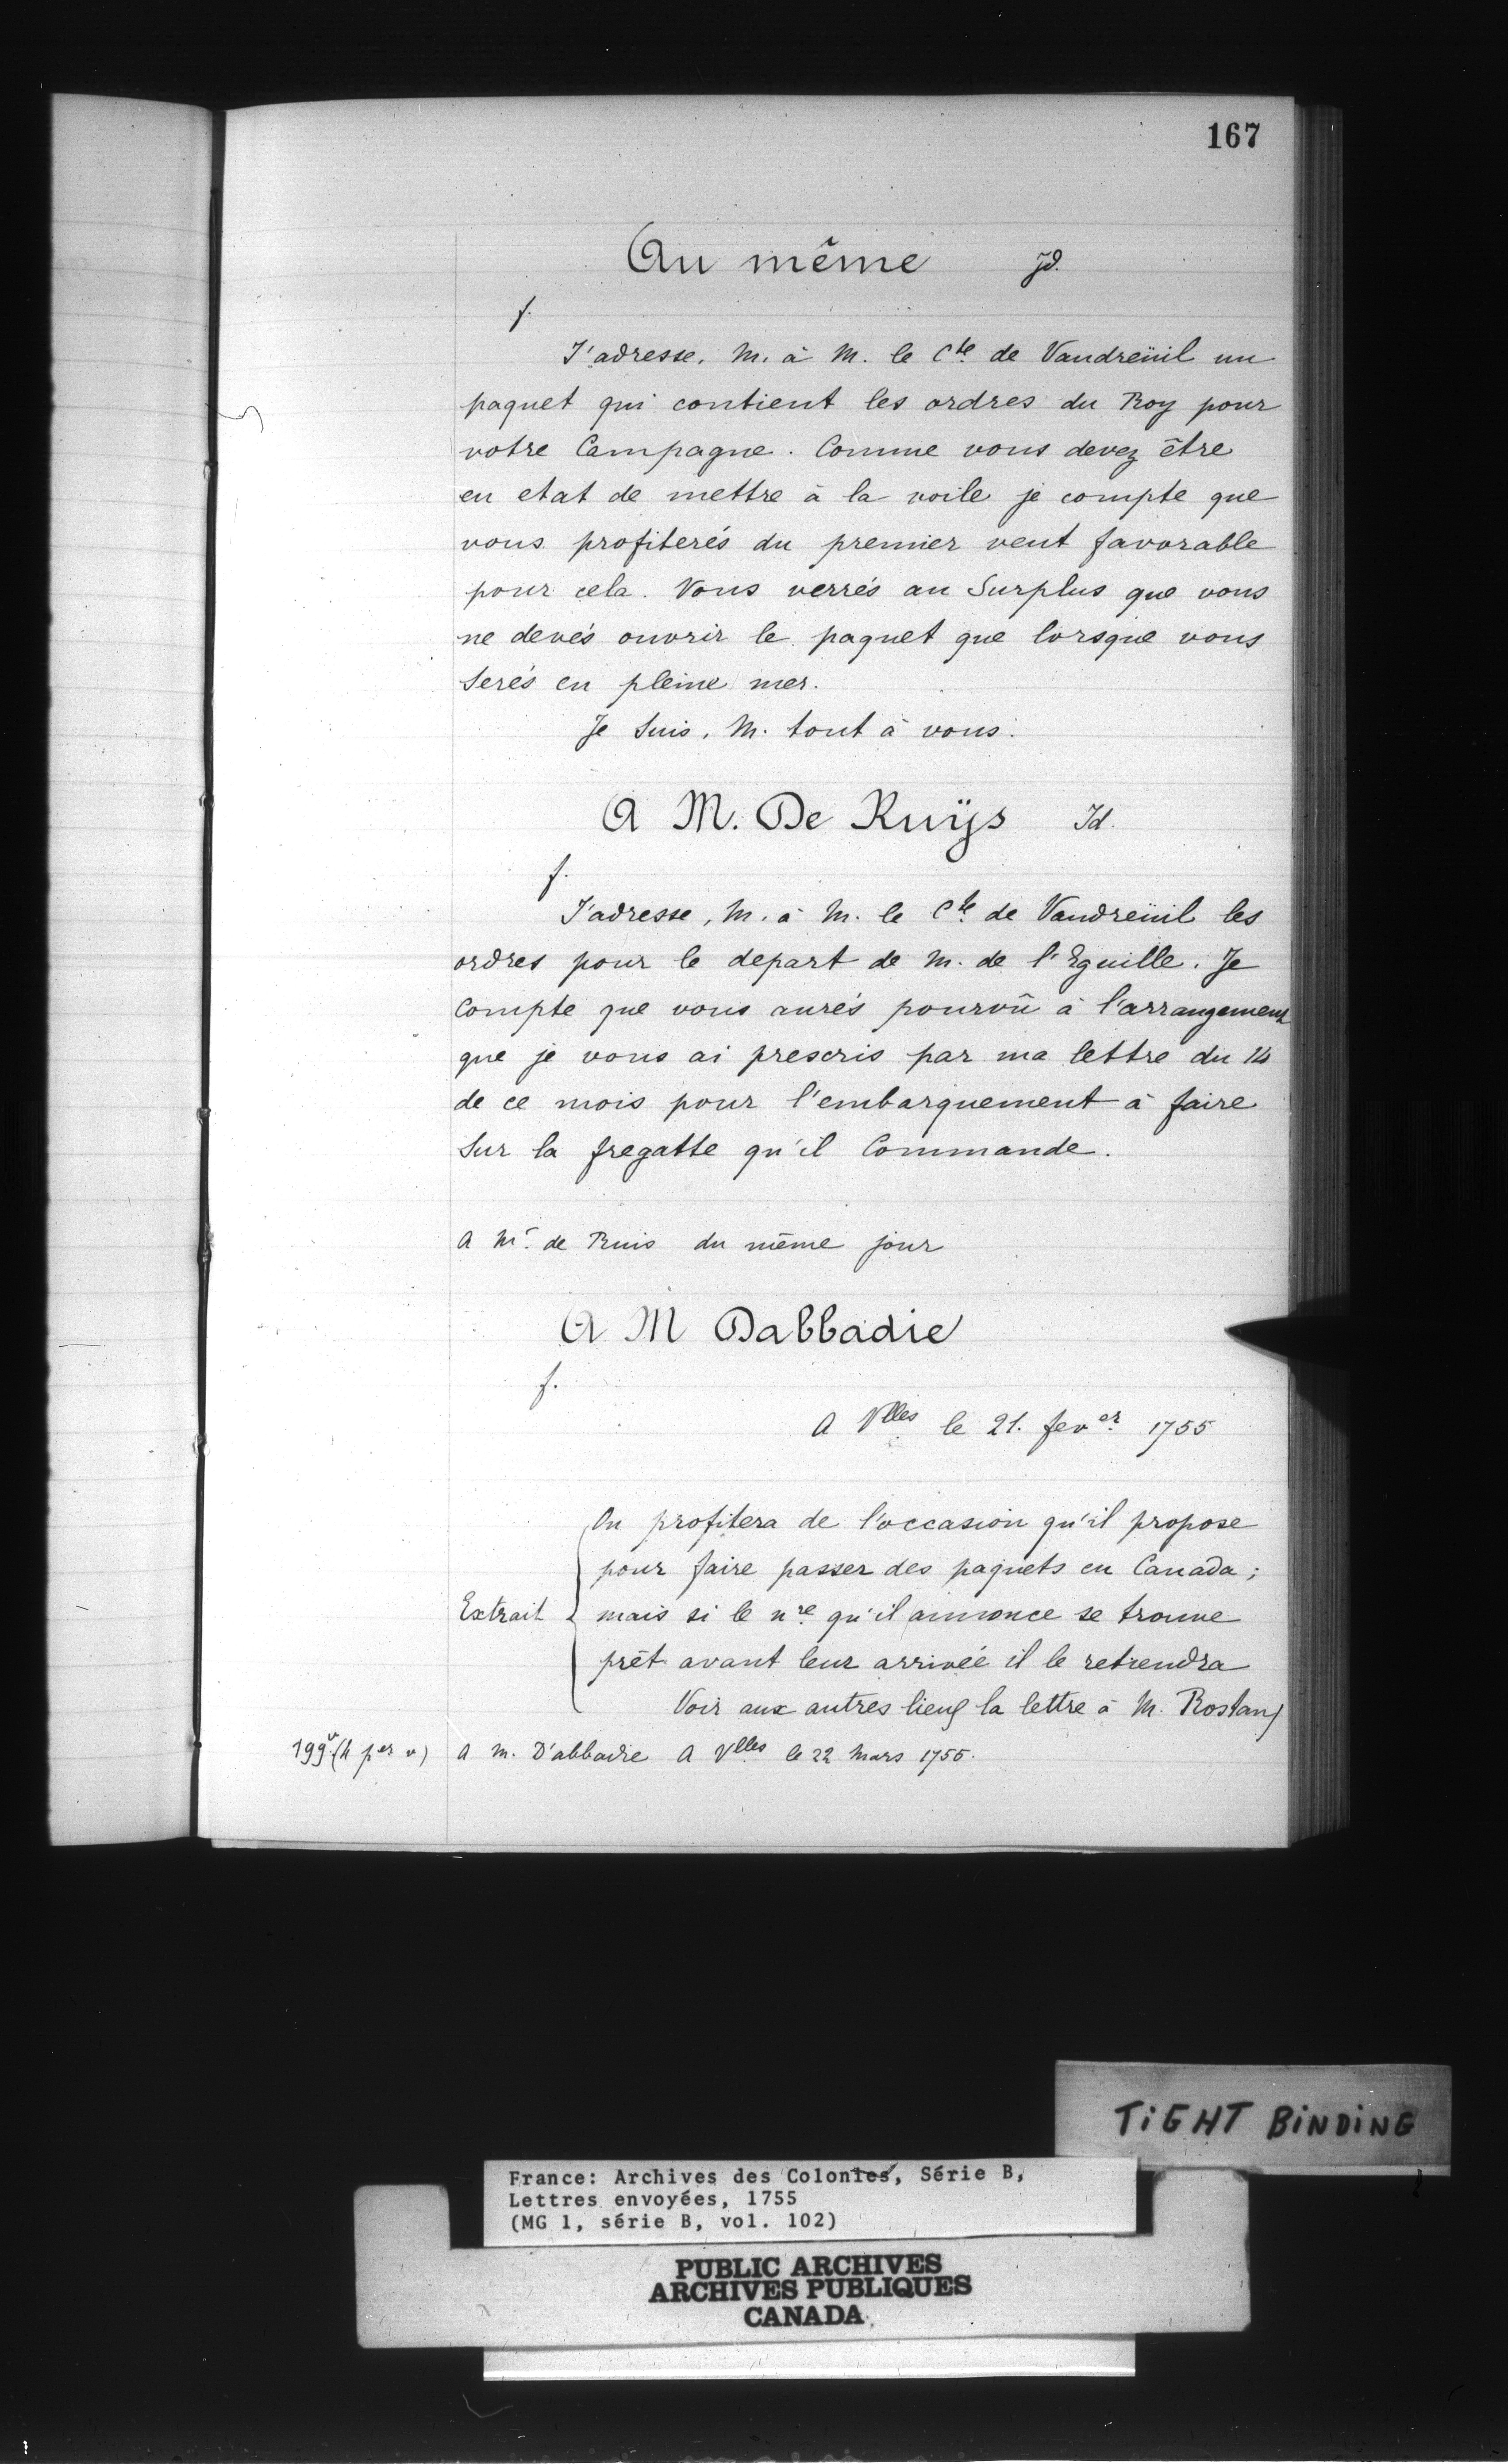 167
Au même Jd.
f.
J'adresse, M. à M. le Cte de Vaudreüil un
paquet qui contient les ordres du Roy pour
votre Campagne. Comme vous devez être
en etat de mettre à la voile je compte que
vous profiterés du premier vent favorable
pour cela. Vous verrés au Surplus que vous
ne devés ouvrir le paquet que lorsque vous
Serés en pleine mer.
Je Suis, M. tout à vous.
A M. De Ruÿs Id.
f.
J'adresse, M. à M. le Cte de Vaudreüil les
ordres pour le depart de M. de l'Eguille. Je
Compte que vous aurés pourvû à l'arrangement
que je vous ai prescris par ma lettre du 14
de ce mois pour l'embarquement à faire
Sur la fregatte qu'il Commande.
A Mr. de Ruis du même jour
A M Dabbadie
f.
A Vlles le 21. fever. 1755
On profitera de l'occasion qu'il propose
pour faire passer des paquets en Canada;
Extrait mais si le nre qu'il annonce se trouve
prêt avant leur arrivée il le retiendra
Voir aux autres lieux la lettre à M. Rostan
199v. A M. D'abbadie A Vlles le 22 Mars 1755.
TIGHT BINDING
France: Archives des Colonies, Série B,
Lettres envoyées, 1755
(MG 1, série B, vol. 102)
PUBLIC ARCHIVES
ARCHIVES PUBLIQUES
CANADA